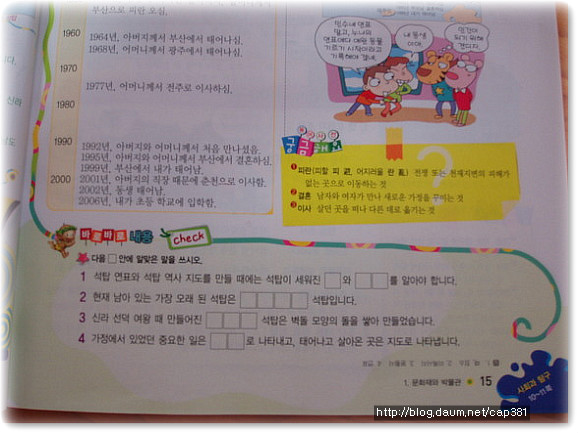 부산으로 피란 오심.
1960
1964년, 아버지께서 부산에서 태어나심.
1968년, 어머니께서 광주에서 태어나심.
1970
1977년, 어머니께서 전주로 이사하심.
1980
1990
1992년, 아버지와 어머니께서 처음 만나셨음.
1995년, 아버지와 어머니께서 부산에서 결혼하심.
1999년, 부산에서 내가 태어남.
2000
2001년, 아버지의 직장 때문에 춘천으로 이사함.
2002년, 동생 태어남.
2006년, 내가 초등 학교에 입학함.
민수네 연표
말고, 누나의
연표에다 애완 동물
기르기 시작이라고
기록해야 겠네.
내 동생
이야.
인간이
되기 위해
견디자.
궁금해요
❶ 피란(피할 피 避, 어지러울 란 亂) 전쟁 또는 천재지변의 피해가
없는 곳으로 이동하는 것
❷ 결혼 남자와 여자가 만나 새로운 가정을 꾸미는 것
❸ 이사 살던 곳을 떠나 다른 데로 옮기는 것
바로바로 내용 check
다음 □ 안에 알맞은 말을 쓰시오.
1 석탑 연표와 석탑 역사 지도를 만들 때에는 석탑이 세워진 □와 □□를 알아야 합니다.
2 현재 남아 있는 가장 오래 된 석탑은 □□□□ 석탑입니다.
3 신라 선덕 여왕 때 만들어진 □□□ 석탑은 벽돌 모양의 돌을 쌓아 만들었습니다.
4 가정에서 있었던 중요한 일은 □□로 나타내고, 태어나고 살아온 곳은 지도로 나타냅니다.
1. 문화재와 박물관 ★ 15
사회과 탐구
10~11쪽
http://blog.daum.net/cap381